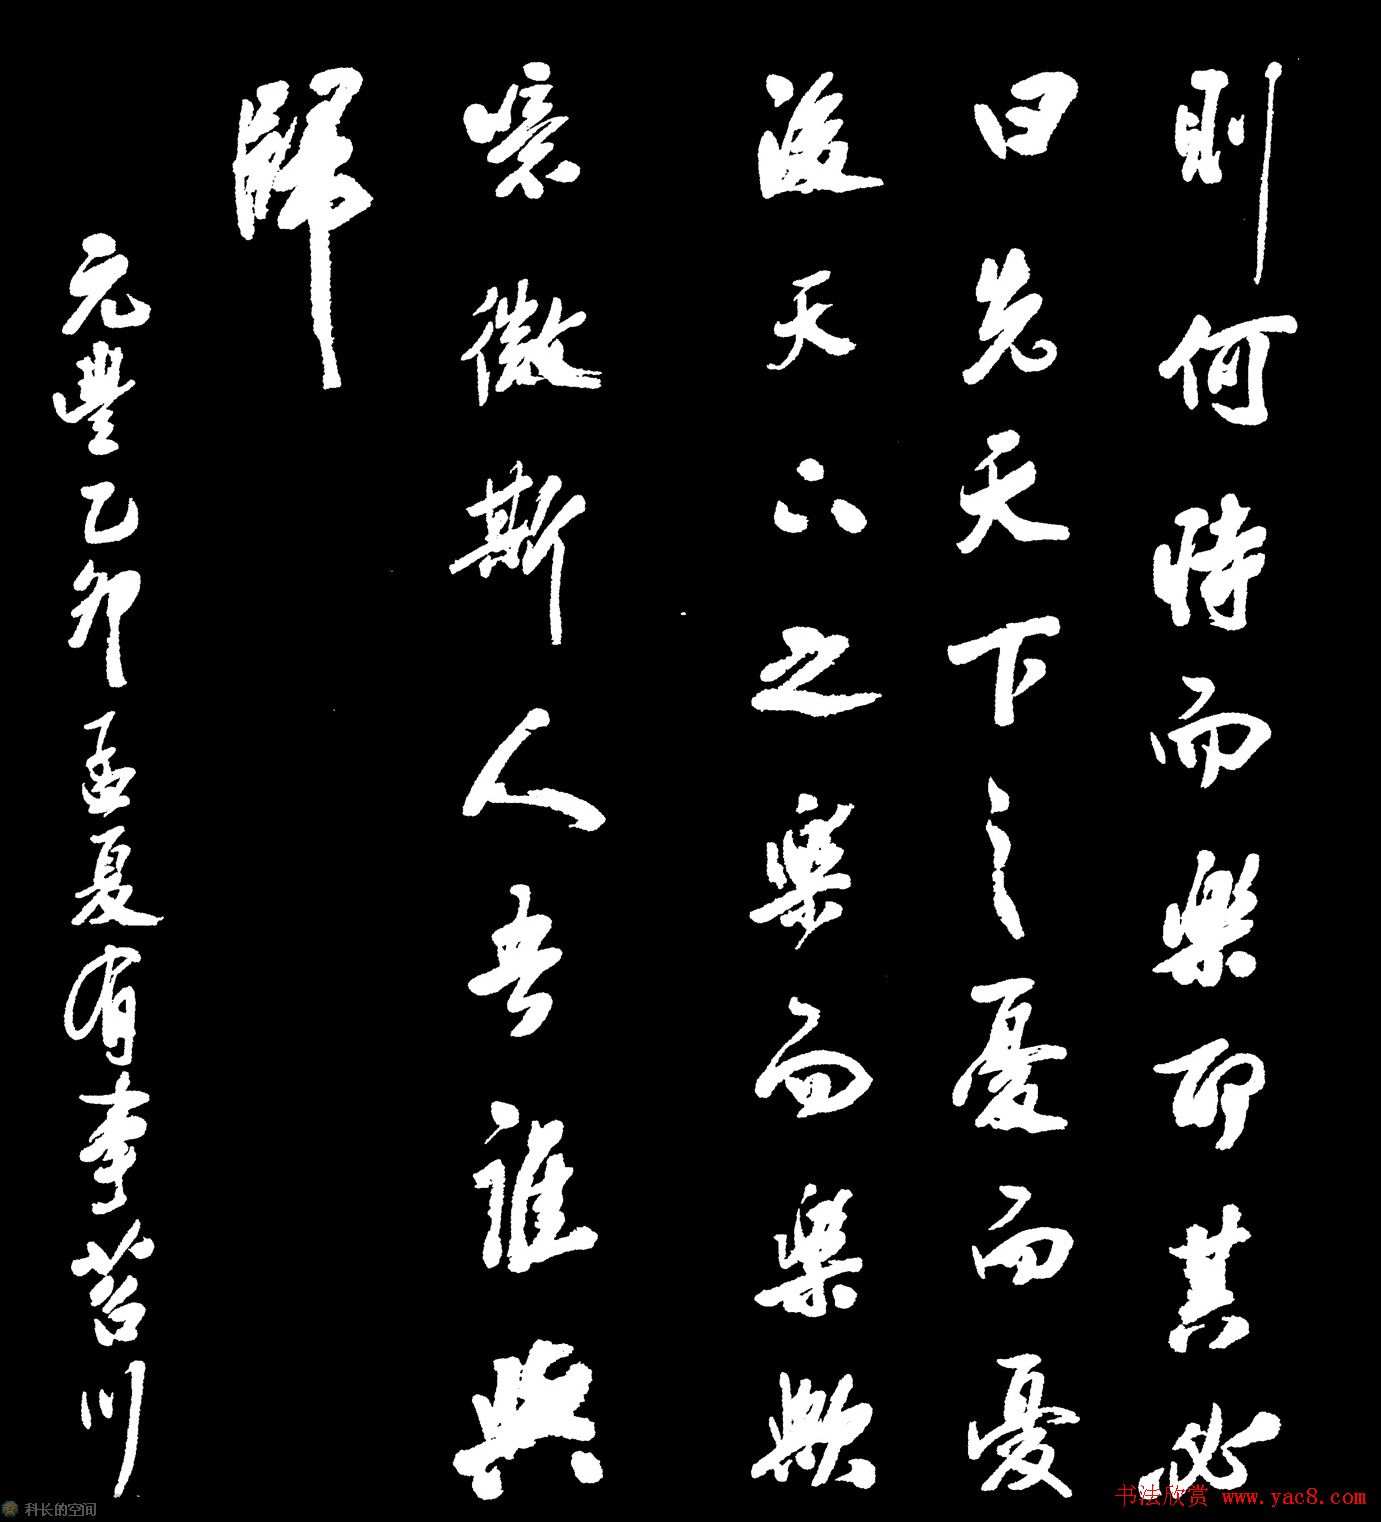 則何時而樂耶其必
曰先天下之憂而憂
後天下之樂而樂歟
噫微斯人吾誰與
歸
元豐乙卯孟夏有事苕川
科长的空间
书法欣赏 www.yac8.com